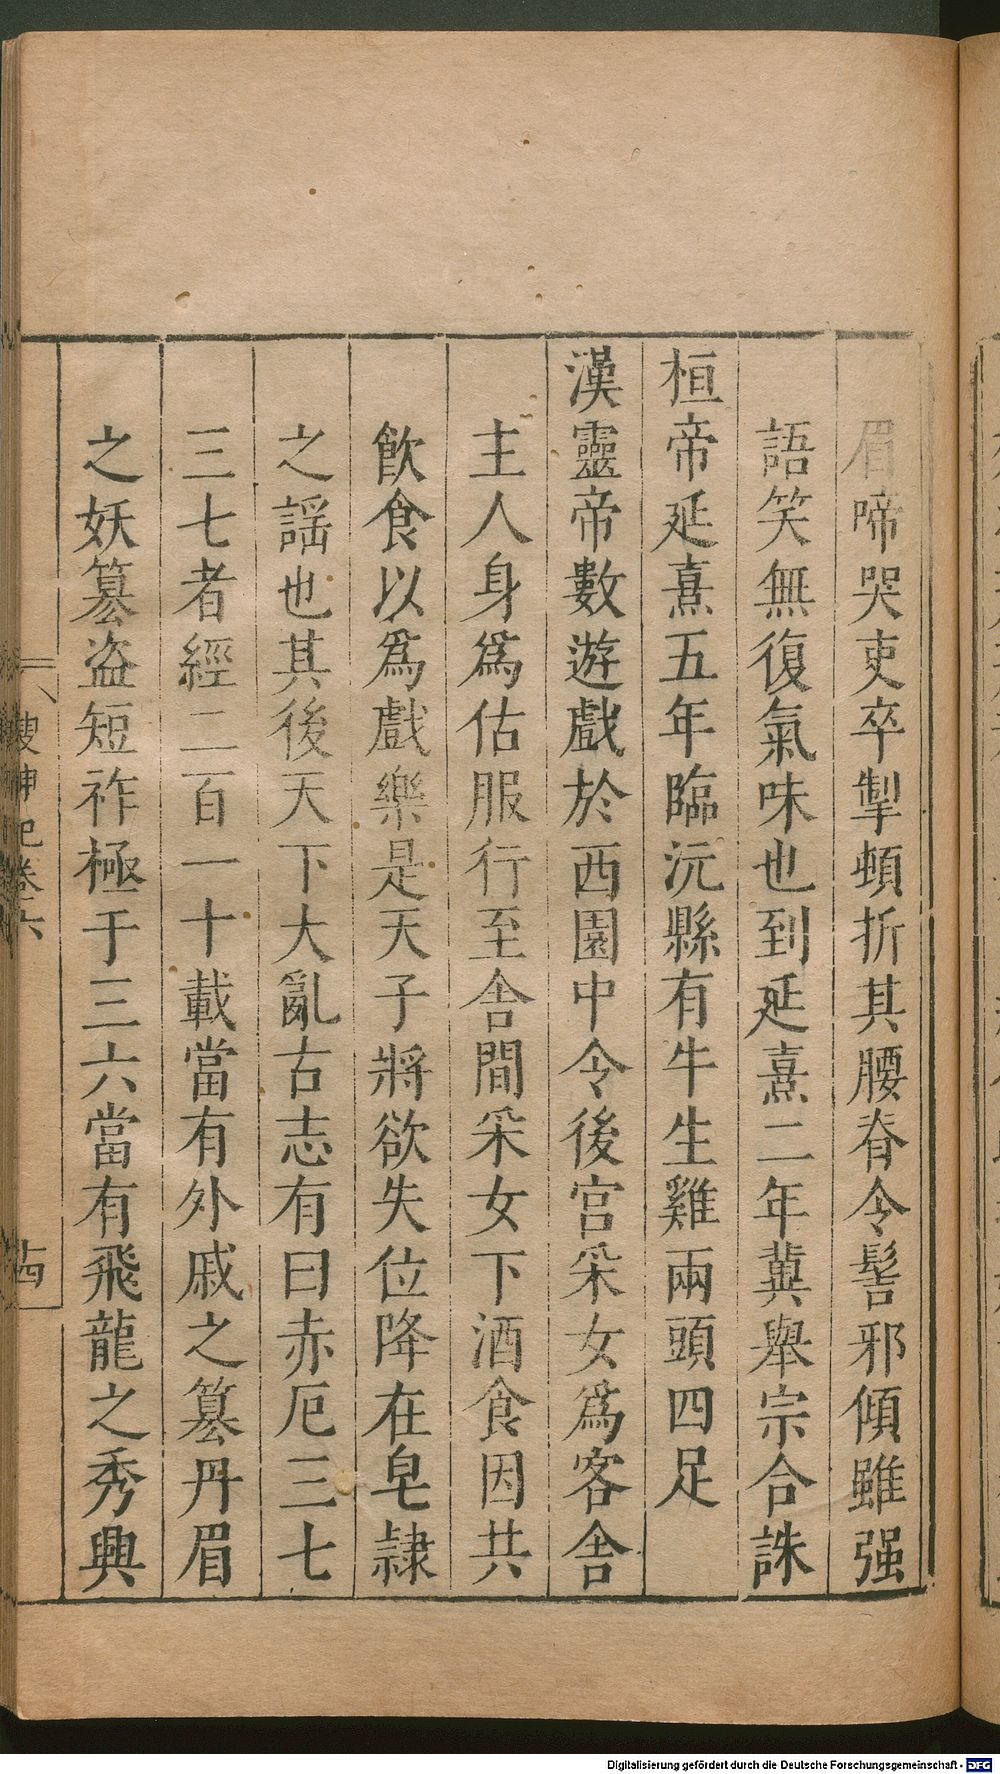 眉啼哭吏卒掣頓折其腰脊令髻邪傾雖强
語笑無復氣味也到延熹二年冀舉宗合誅
桓帝延熹五年臨沅縣有牛生雞兩頭四足
漢靈帝數遊戲於西園中令後宮采女爲客舍
主人身爲估服行至舍間采女下酒食因共
飲食以爲戲樂是天子將欲失位降在皂隷
之謡也其後天下大亂古志有曰赤厄三七
三七者經二百一十載當有外戚之簒丹眉
之妖簒盗短祚極于三六當有飛龍之秀興
搜神記卷六
十四
Digitalisierung gefördert durch die Deutsche Forschungsgemeinschaft - DFG